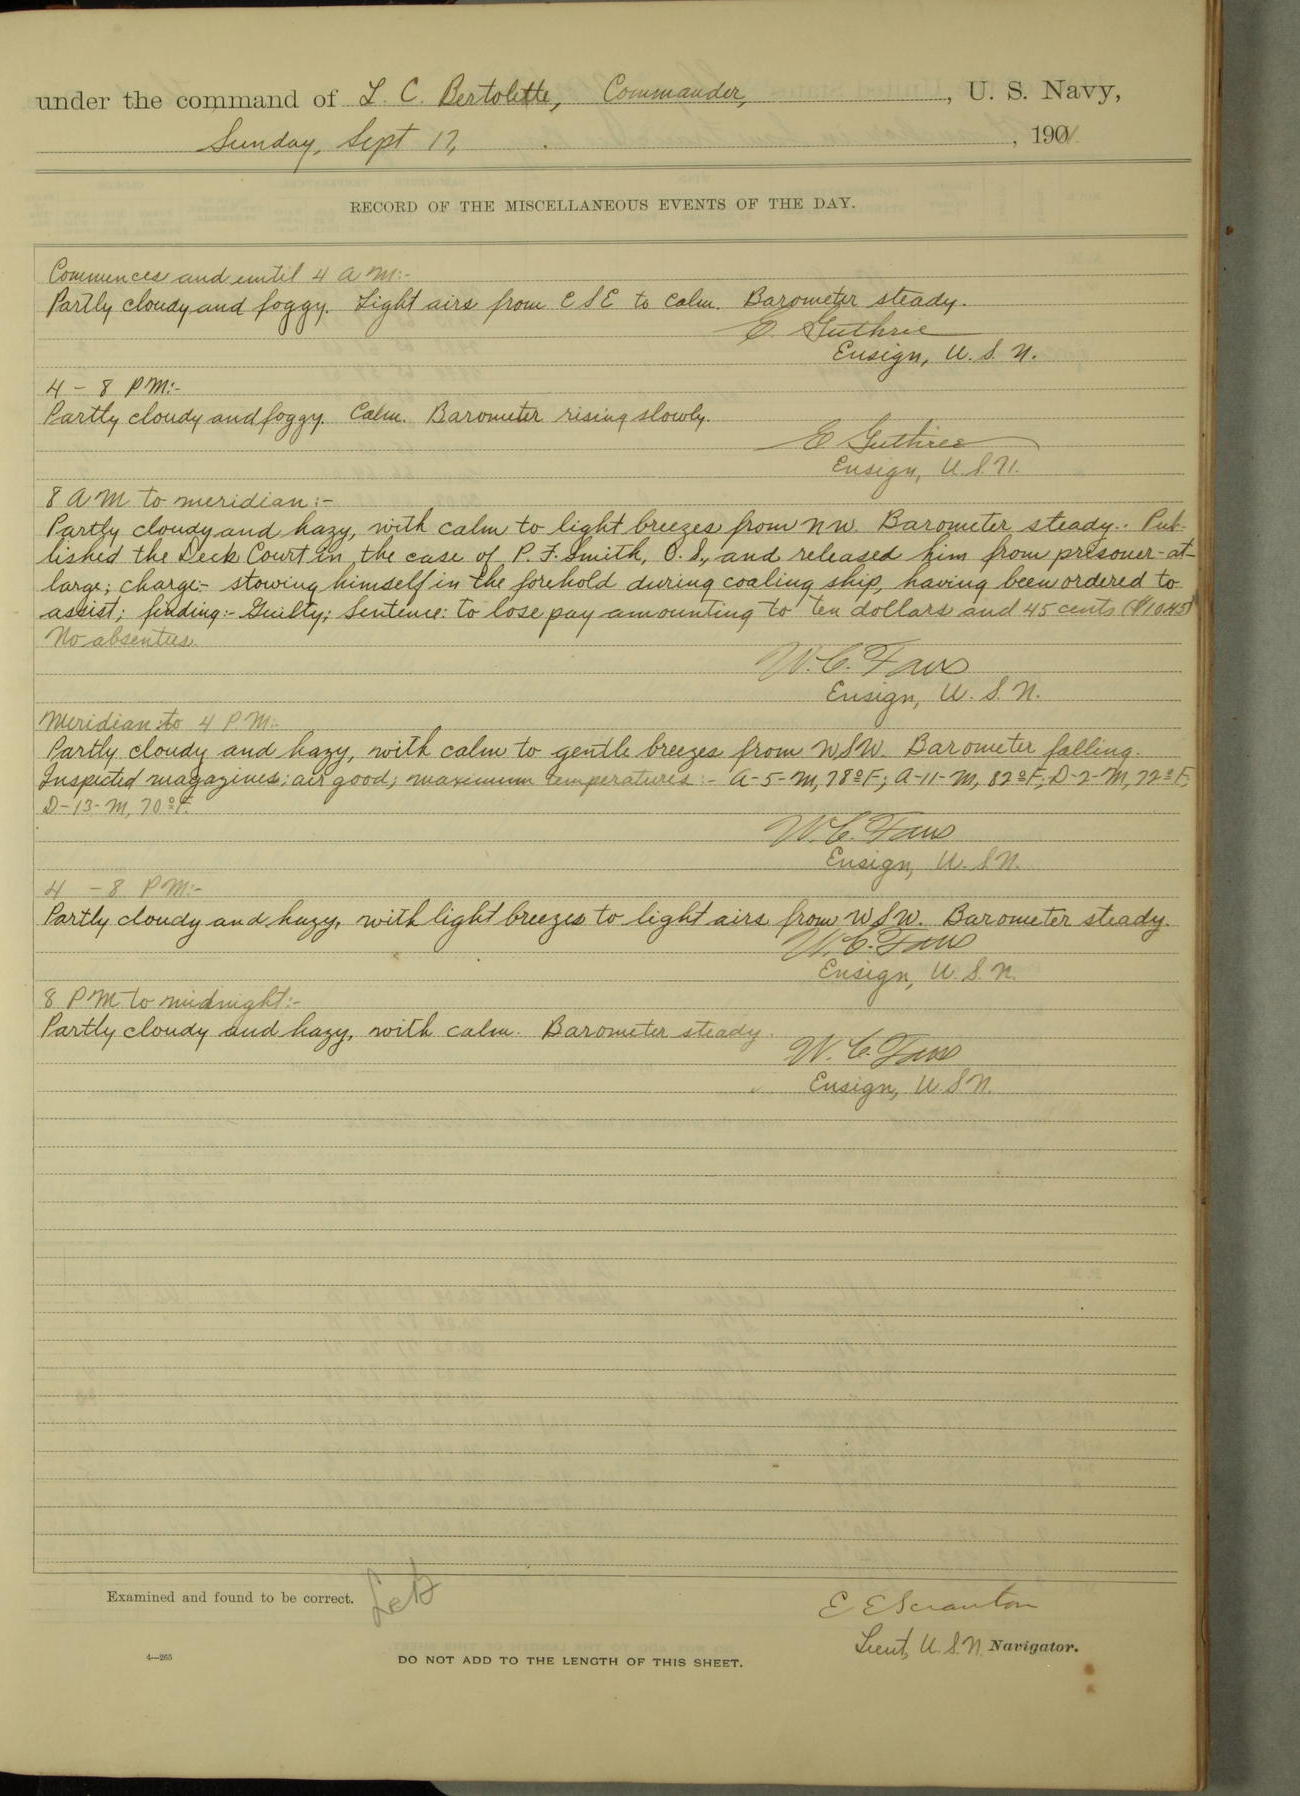 under the command of L. C. Bertolette, Commander, , U. S. Navy,
Sunday, Sept 17, , 190
RECORD OF THE MISCELLANEOUS EVENTS OF THE DAY.
Commences and until 4 A M:-
Partly cloudy and foggy. Light airs from ESE to calm. Barometer steady.
E. Guthrie
Ensign, U. S. N.
4 - 8 P M:-
Partly cloudy and foggy. Calm. Barometer rising slowly.
E Guthrie
Ensign, U.S.N.
8 A M to meridian:-
Partly cloudy and hazy, with calm to light breezes from NW. Barometer steady. Pub-
lished the Deck Court in the case of P. F. Smith, O. S., and released him from prisoner-at-
large; charge:- stowing himself in the forehold during coaling ship, having been ordered to
assist; finding:- Guilty; Sentence: to lose pay amounting to ten dollars and 45 cents ($10.45)
No absentees.
W. C. Faus
Ensign, U. S. N.
Meridian to 4 P M:-
Partly cloudy and hazy, with calm to gentle breezes from WSW. Barometer falling.
Inspected magazines; air good; maximum temperatures:- A-5-M, 78°F; A-11-M, 82°F; D-2-M, 72°F;
D-13-M, 70°F.
W. C. Faus
Ensign, U. S. N.
4 - 8 P M:-
Partly cloudy and hazy, with light breezes to light airs from WSW. Barometer steady.
W. C. Faus
Ensign, U. S. N.
8 P M to midnight:-
Partly cloudy and hazy, with calm. Barometer steady.
W. C. Faus
Ensign, U.S.N.
Examined and found to be correct.
E E Scranton
Lieut, U.S.N. Navigator.
4—265
DO NOT ADD TO THE LENGTH OF THIS SHEET.